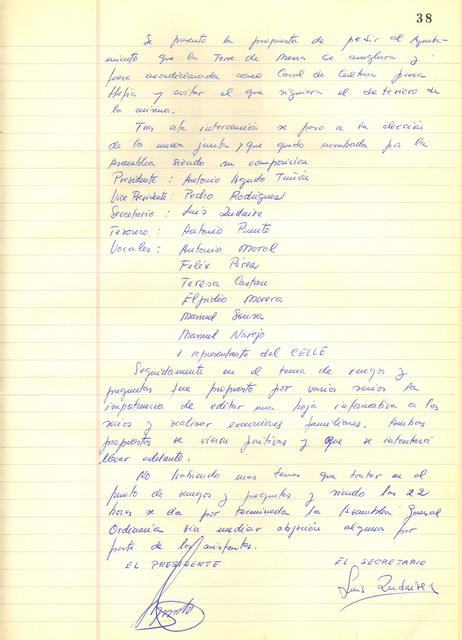 38
Se presento la propuesta de pedir al Ayunta-
miento que la Torre de Mena se arreglara y
fuese acondicionada como Casal de Cultura para
Mejia y evitar el que siguiera el deterioro de
la misma.
Tras esta intervención se paso a la elección
de la nueva junta y que quedo nombrada por la
Asamblea siendo su composicion
Presidente : Antonio Agudo Tuñón
Vice Presidente : Pedro Rodriguez
Secretario : Luis Zudaire
Tesorero : Antonio Puente
Vocales : Antonio Moral
Felix Pérez
Teresa Castan
Elpidio Morera
Manuel Sousa
Manuel Narejo
1 representante del CELLE
Seguidamente en el tema de ruegos y
preguntas fue propuesto por varios socios la
importancia de editar una hoja informativa a los
socios y realizar excursiones familiares. Ambas
propuestas se vieron positivas y que se intentará
llevar adelante.
No habiendo mas temas que tratar en el
punto de ruegos y preguntas y siendo las 22
horas se da por terminada la Asamblea General
Ordinaria sin mediar objeción alguna por
parte de los asistentes.
EL PRESIDENTE EL SECRETARIO
Luis Zudaire